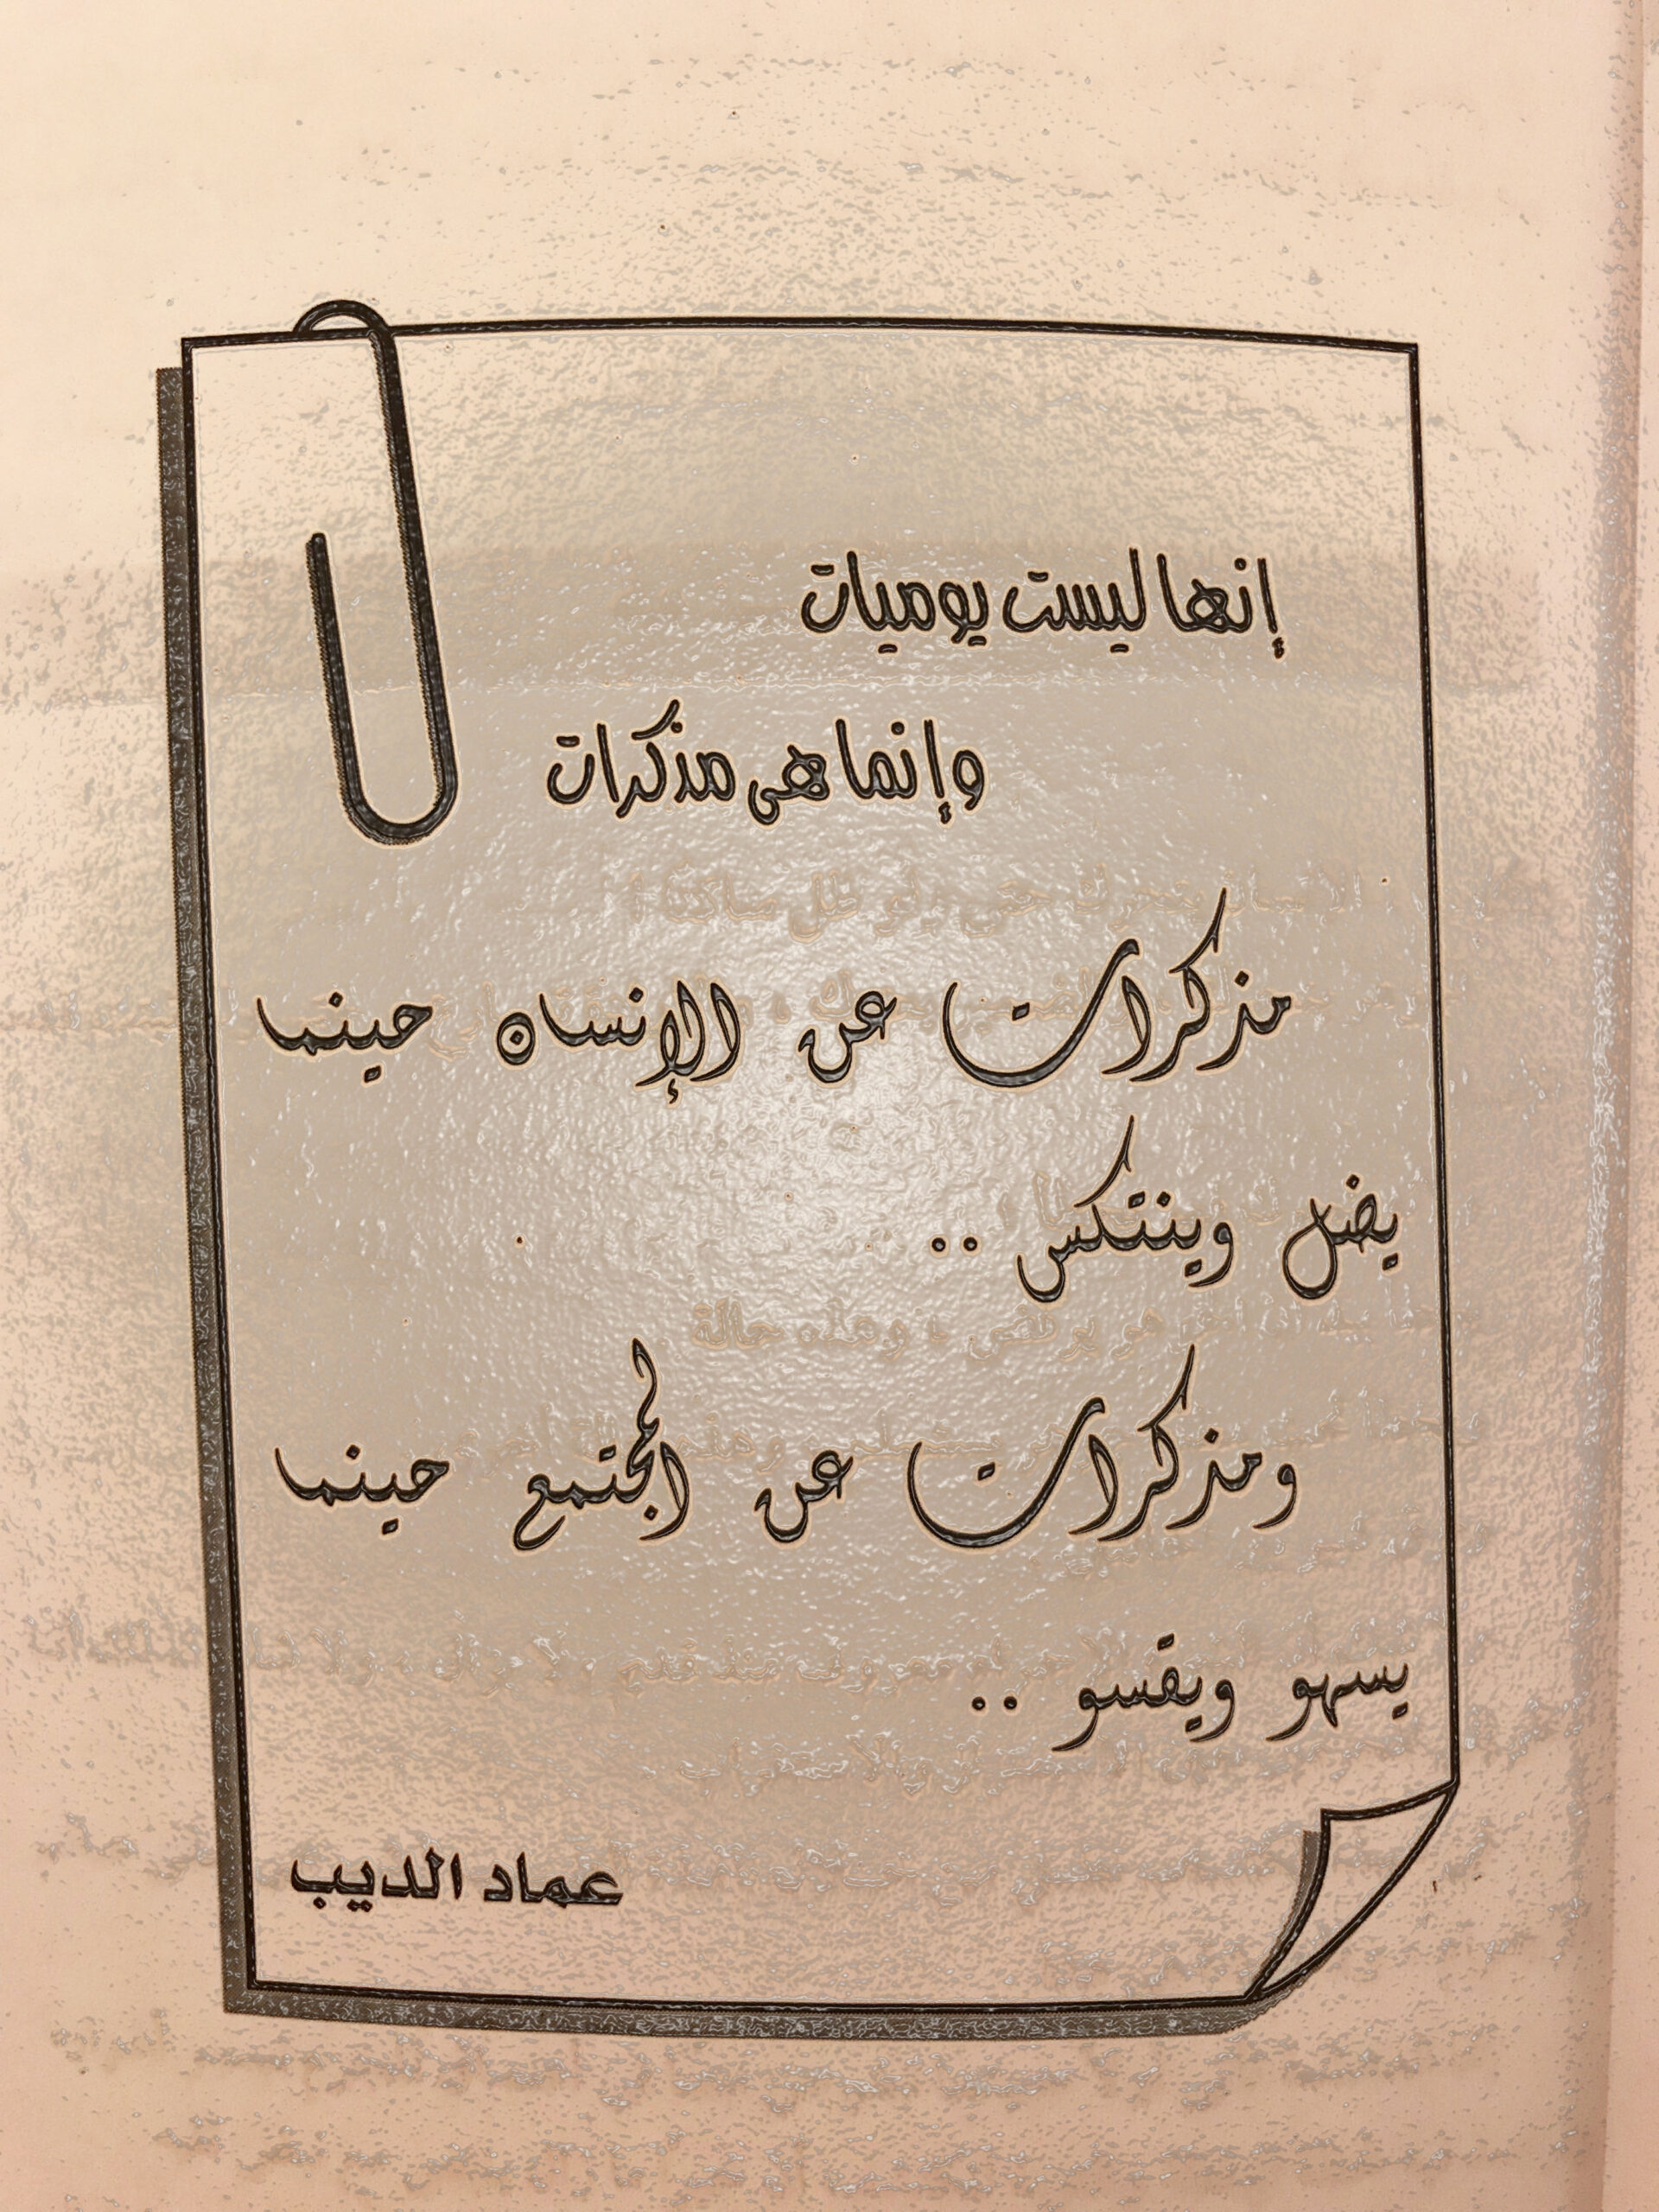 إنها ليست يوميات
وإنما هى مذكرات
مذكرات عن الإنسان حينما
يضل وينتكس ..
ومذكرات عن المجتمع حينما
يسهو ويقسو ..
عماد الديب